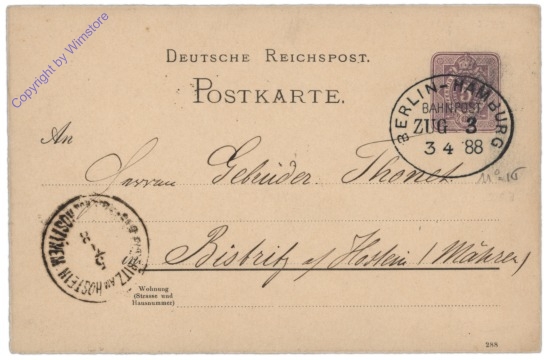 Copyright by Wimstore
DEUTSCHE REICHSPOST.
POSTKARTE.
BERLIN-HAMBURG
BAHNPOST
ZUG 3
3 4 88
An
Herren Gebrüder Thonet
Bistritz a/ Hostein (Mähren)
AM HOSTEIN
Wohnung
(Strasse und
Hausnummer)
288